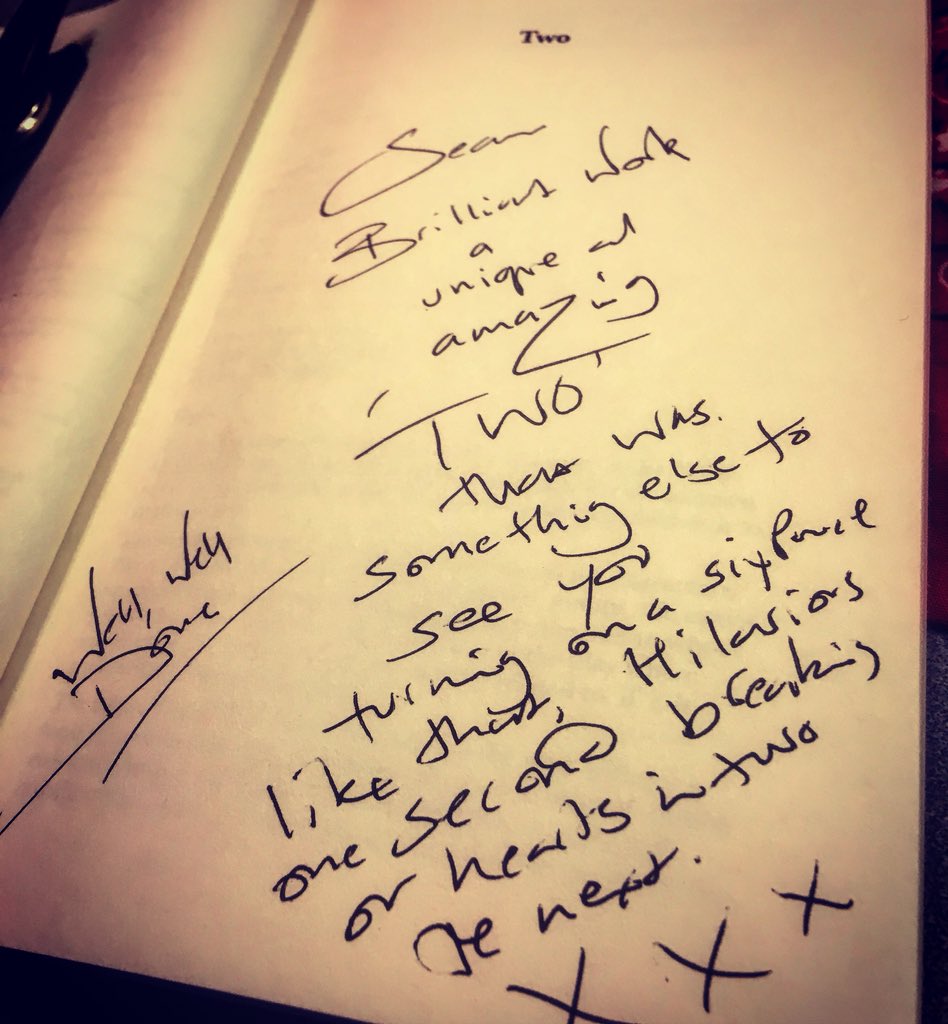 Two
Sean
Brilliant work
a
unique and
amazing
'TWO'
that was
something else to
see you
turning on a sixpence
like that, Hilarious
one second breaking
or hearts in two
the next.
x x x
Well, Well
Done